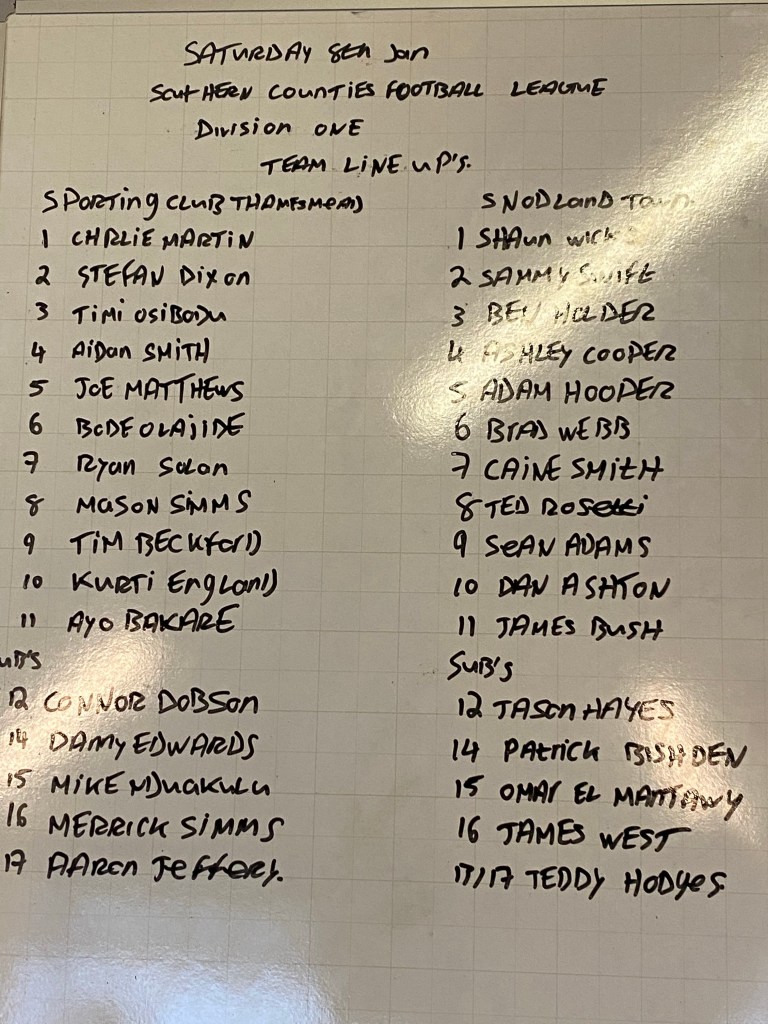 SATURDAY 8th Jan
SOUTHERN COUNTIES FOOTBALL LEAGUE
Division ONE
TEAM LINE UP'S.
SPORTING CLUB THAMESMEAD
1 CHRLIE MARTIN
2 STEFAN Dixon
3 TIMI OSIBODU
4 AIDAN SMITH
5 JOE MATTHEWS
6 BODE OLAJIDE
7 Ryan Solan
8 MASON SIMMS
9 TIM BECKFORD
10 KURTI ENGLAND
11 AYO BAKARE
UB'S
12 CONNOR DOBSON
14 DANNY EDWARDS
15 MIKE
16 MERRICK SIMMS
17 AARON JEFFERY.
SNODLAND TOWN
1 SHAUN
2 SAMMY SWIFT
3 BEN HOLDER
4 ASHLEY COOPER
5 ADAM HOOPER
6 BRAD WEBB
7 CAINE SMITH
8 TED ROSETTI
9 SEAN ADAMS
10 DAN ASHTON
11 JAMES BUSH
SUB'S
12 JASON HAYES
14 PATRICK
15 OMAR EL
16 JAMES WEST
17 TEDDY HODGES